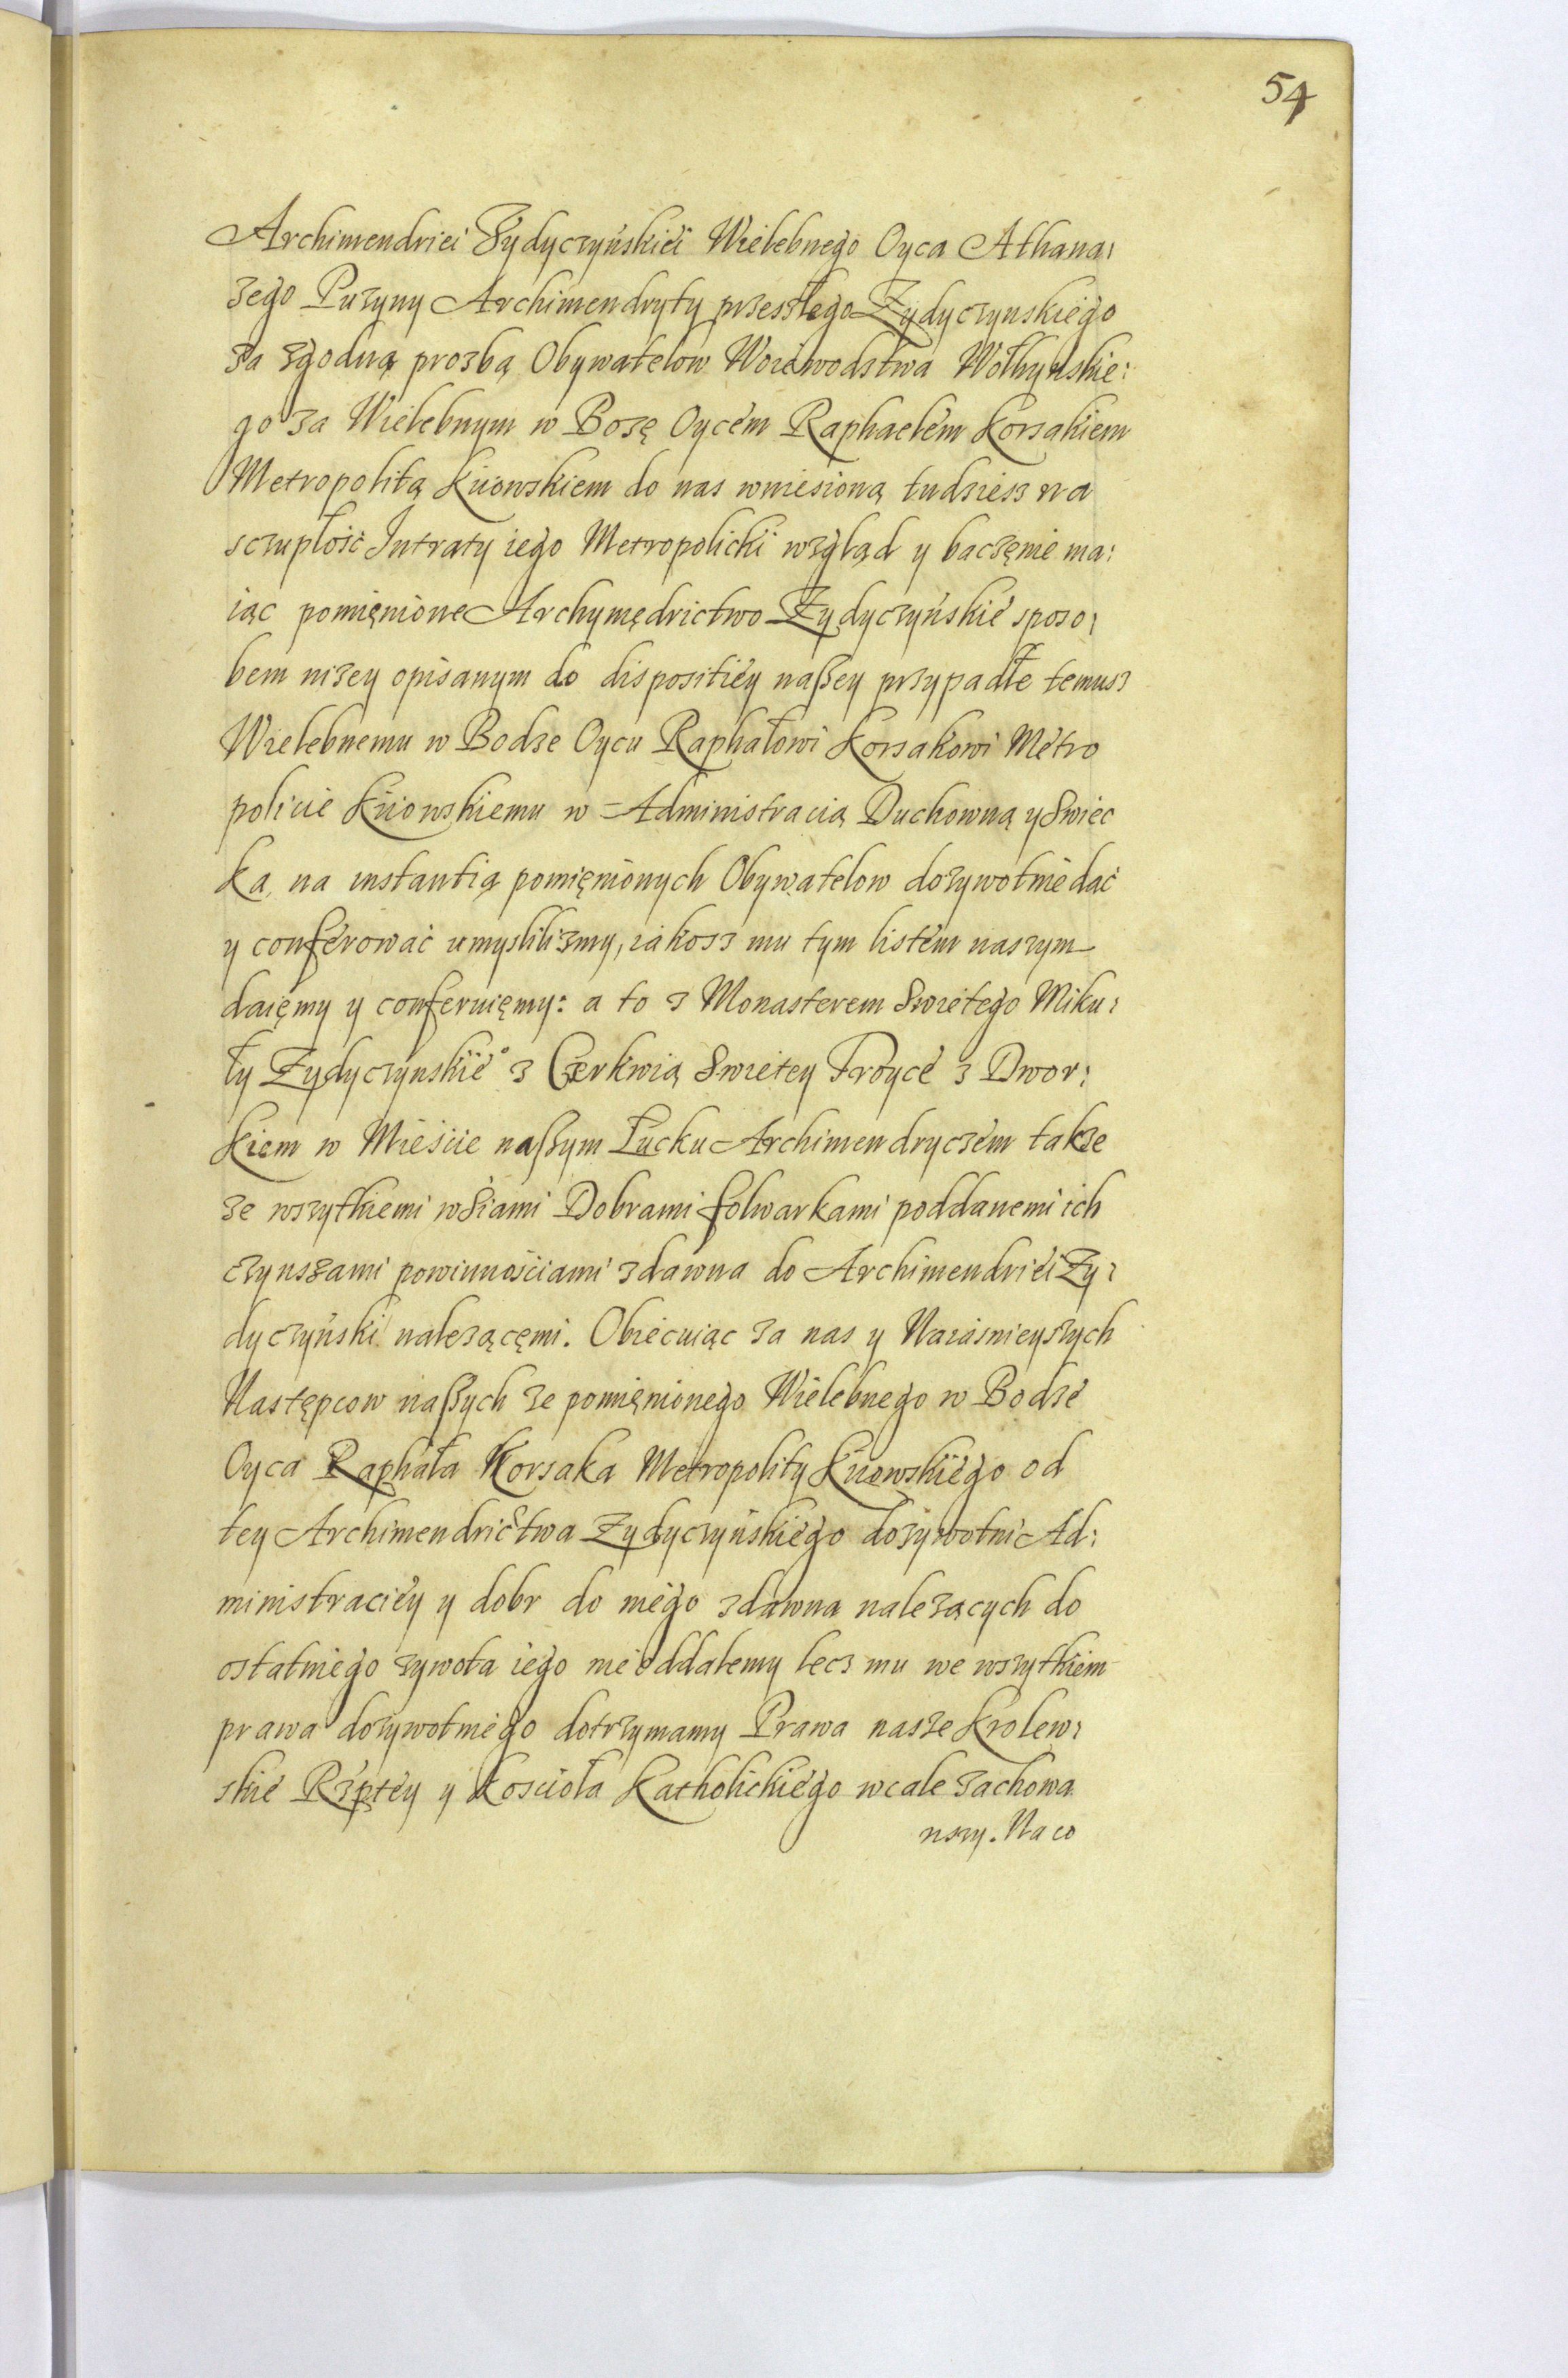 54
Archimendriei Żydyczyńskiei Wielebnego Oyca Athana:
zego Puzyny Archimendryty przeszłego Zydyczynskiego
za zgodną prozbą Obywatelow Woiewodstwa Wołhynskie:
go za Wielebnym w Bozę Oycem Raphaelem Korsakiem
Metropolitą Kiiowskiem do nas wniesioną tudziesz na
sczupłość Intraty iego Metropolicki wzgląd y baczęnie ma:
iąc pomięnione Archymędrictwo Zydyczyńskie sposo:
bem nizey opisanym do dispositiey naszey przypadłe temusz
Wielebnemu w Bodze Oycu Raphałowi Korsakowi Metro
policie Kiiowskiemu w Administracią Duchowną y Swiec
ką na instantią pomięnionych Obywatelow dozywotnie dać
y conferować umyslilizmy, iakosz mu tym listem naszym
daięmy y conferuięmy: a to z Monasterem Swietego Miku:
ły Zydyczynskie° z Cerkwią Swietey Troyce z Dwor:
kiem w Mieście naszym Łucku Archimendryczem takze
ze wszytkiemi wsiami Dobrami folwarkami poddanemi ich
czynszami powinnościami zdawna do Archimendriei Zy:
dyczyński nalezącęmi. Obiecuiąc za nas y Naiasnieyszych
Następcow naszych ze pomięnionego Wielebnego w Bodze
Oyca Raphała Korsaka Metropolity Kiiowskiego od
tey Archimendrictwa Zydyczyńskiego dozywotni Ad:
ministraciey y dobr do niego zdawna nalezących do
ostatniego zywota iego nie oddalemy lecz mu we wszytkiem
prawa dozywotniego dotrzymamy Prawa nasze Krolew:
skie Rzptey y Koscioła Katholickiego wcale zachowa
wszy. Na co